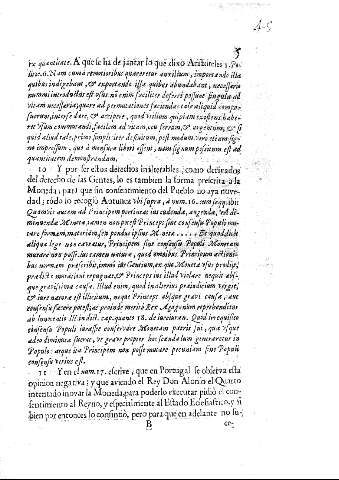 5
re quantitate. A que se ha de juntar lo que dixo Aristoteles 1. Po-
litic. 6. Nam cum à remotioribus quæreretur auxilium, importando illa
quibus indigebant, & exportando illa quibus abundabant, necessario
nummi introductus est usus: ni enim facilitèr deferri possunt singula ad
vitam necessaria; quare ad permutationes faciendas tale aliquid compo-
suerunt, inter se dare, & accipere, quod utilium quipiam existens habe-
ret usum commutandi, facilem ad vitam, ceu ferrum, & argentum, & si
quid aliud tale, primo simpliciter definitum, post modum verò etiam sig-
no impressum, quo à mensura liberi essent, nam signum positum est ad
quantitatem demonstrandam.
10 Y por ser estos derechos inalterables, como derivados
del derecho de las Gentes, lo es tambien la forma prescrita à la
Moneda, para que sin consentimiento del Pueblo no aya nove-
dad; todo lo recogiò Antunez ubi supra, à num. 16. cum sequentib.
Quamvis autem ad Principem pertineat ius cudendæ, augendæ, vel di-
minuendæ Monetæ, tamen non potest Princeps sine consensu Populi mu-
tare formam, materiam, seu pondus ipsius Monetæ..... Et quod dicit
aliqua lege non caveatur, Principem sine consensu Populi Monetam
mutare non posse,
bus normam præscribit, immò ius Gentium, ex quo Monetæ usus prodijt,
prædictæ mutationi repugnet, & Princeps ius illud violare nequit abs-
que gravissima causa. Illud enim, quod in alterius præiudicium vergit,
& iure naturæ est illicitum, neque Princeps absque gravi causa, aut
consensu facere potest: ac proinde meritò Rex Aragonum reprehenditur
ab Innocentio III. in dict. cap. quanto 18. de iureiuran. Quod in quisisse
consensu Populi iurasset conservare Monetam patris sui, quæ usque
adeò diminuta fuerat, ut grave propter hoc scandalum generaretur in
Populo: atque ita Principem non posse mutare pecuniam sine Populi
consensu verius est.
11 Y en el num. 17. escrive, que en Portugal se observa esta
opinion negativa; y que aviendo el Rey Don Alonso el Quarto
intentado inovar la Moneda, para poderlo executar pidiò el con-
sentimiento al Reyno, y especialmente al Estado Eclesiastico, y si
bien por entonces lo consintiò, pero para que en adelante no su-
B
ce-